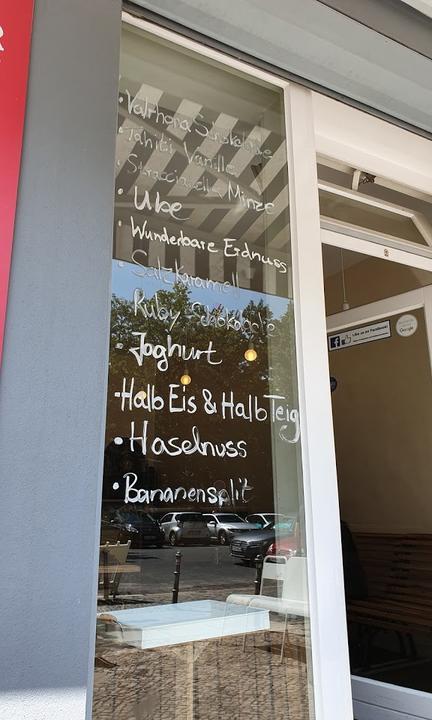 R
• Valrhona Schokolade
• Tahiti Vanille
• Stracciatella Minze
• Ube
• Wunderbare Erdnuss
• Salzkaramell
Ruby Schokolade
• Joghurt
• Halb Eis & Halb Teig
• Haselnuss
• Bananensplit
Like us on Facebook!
Google